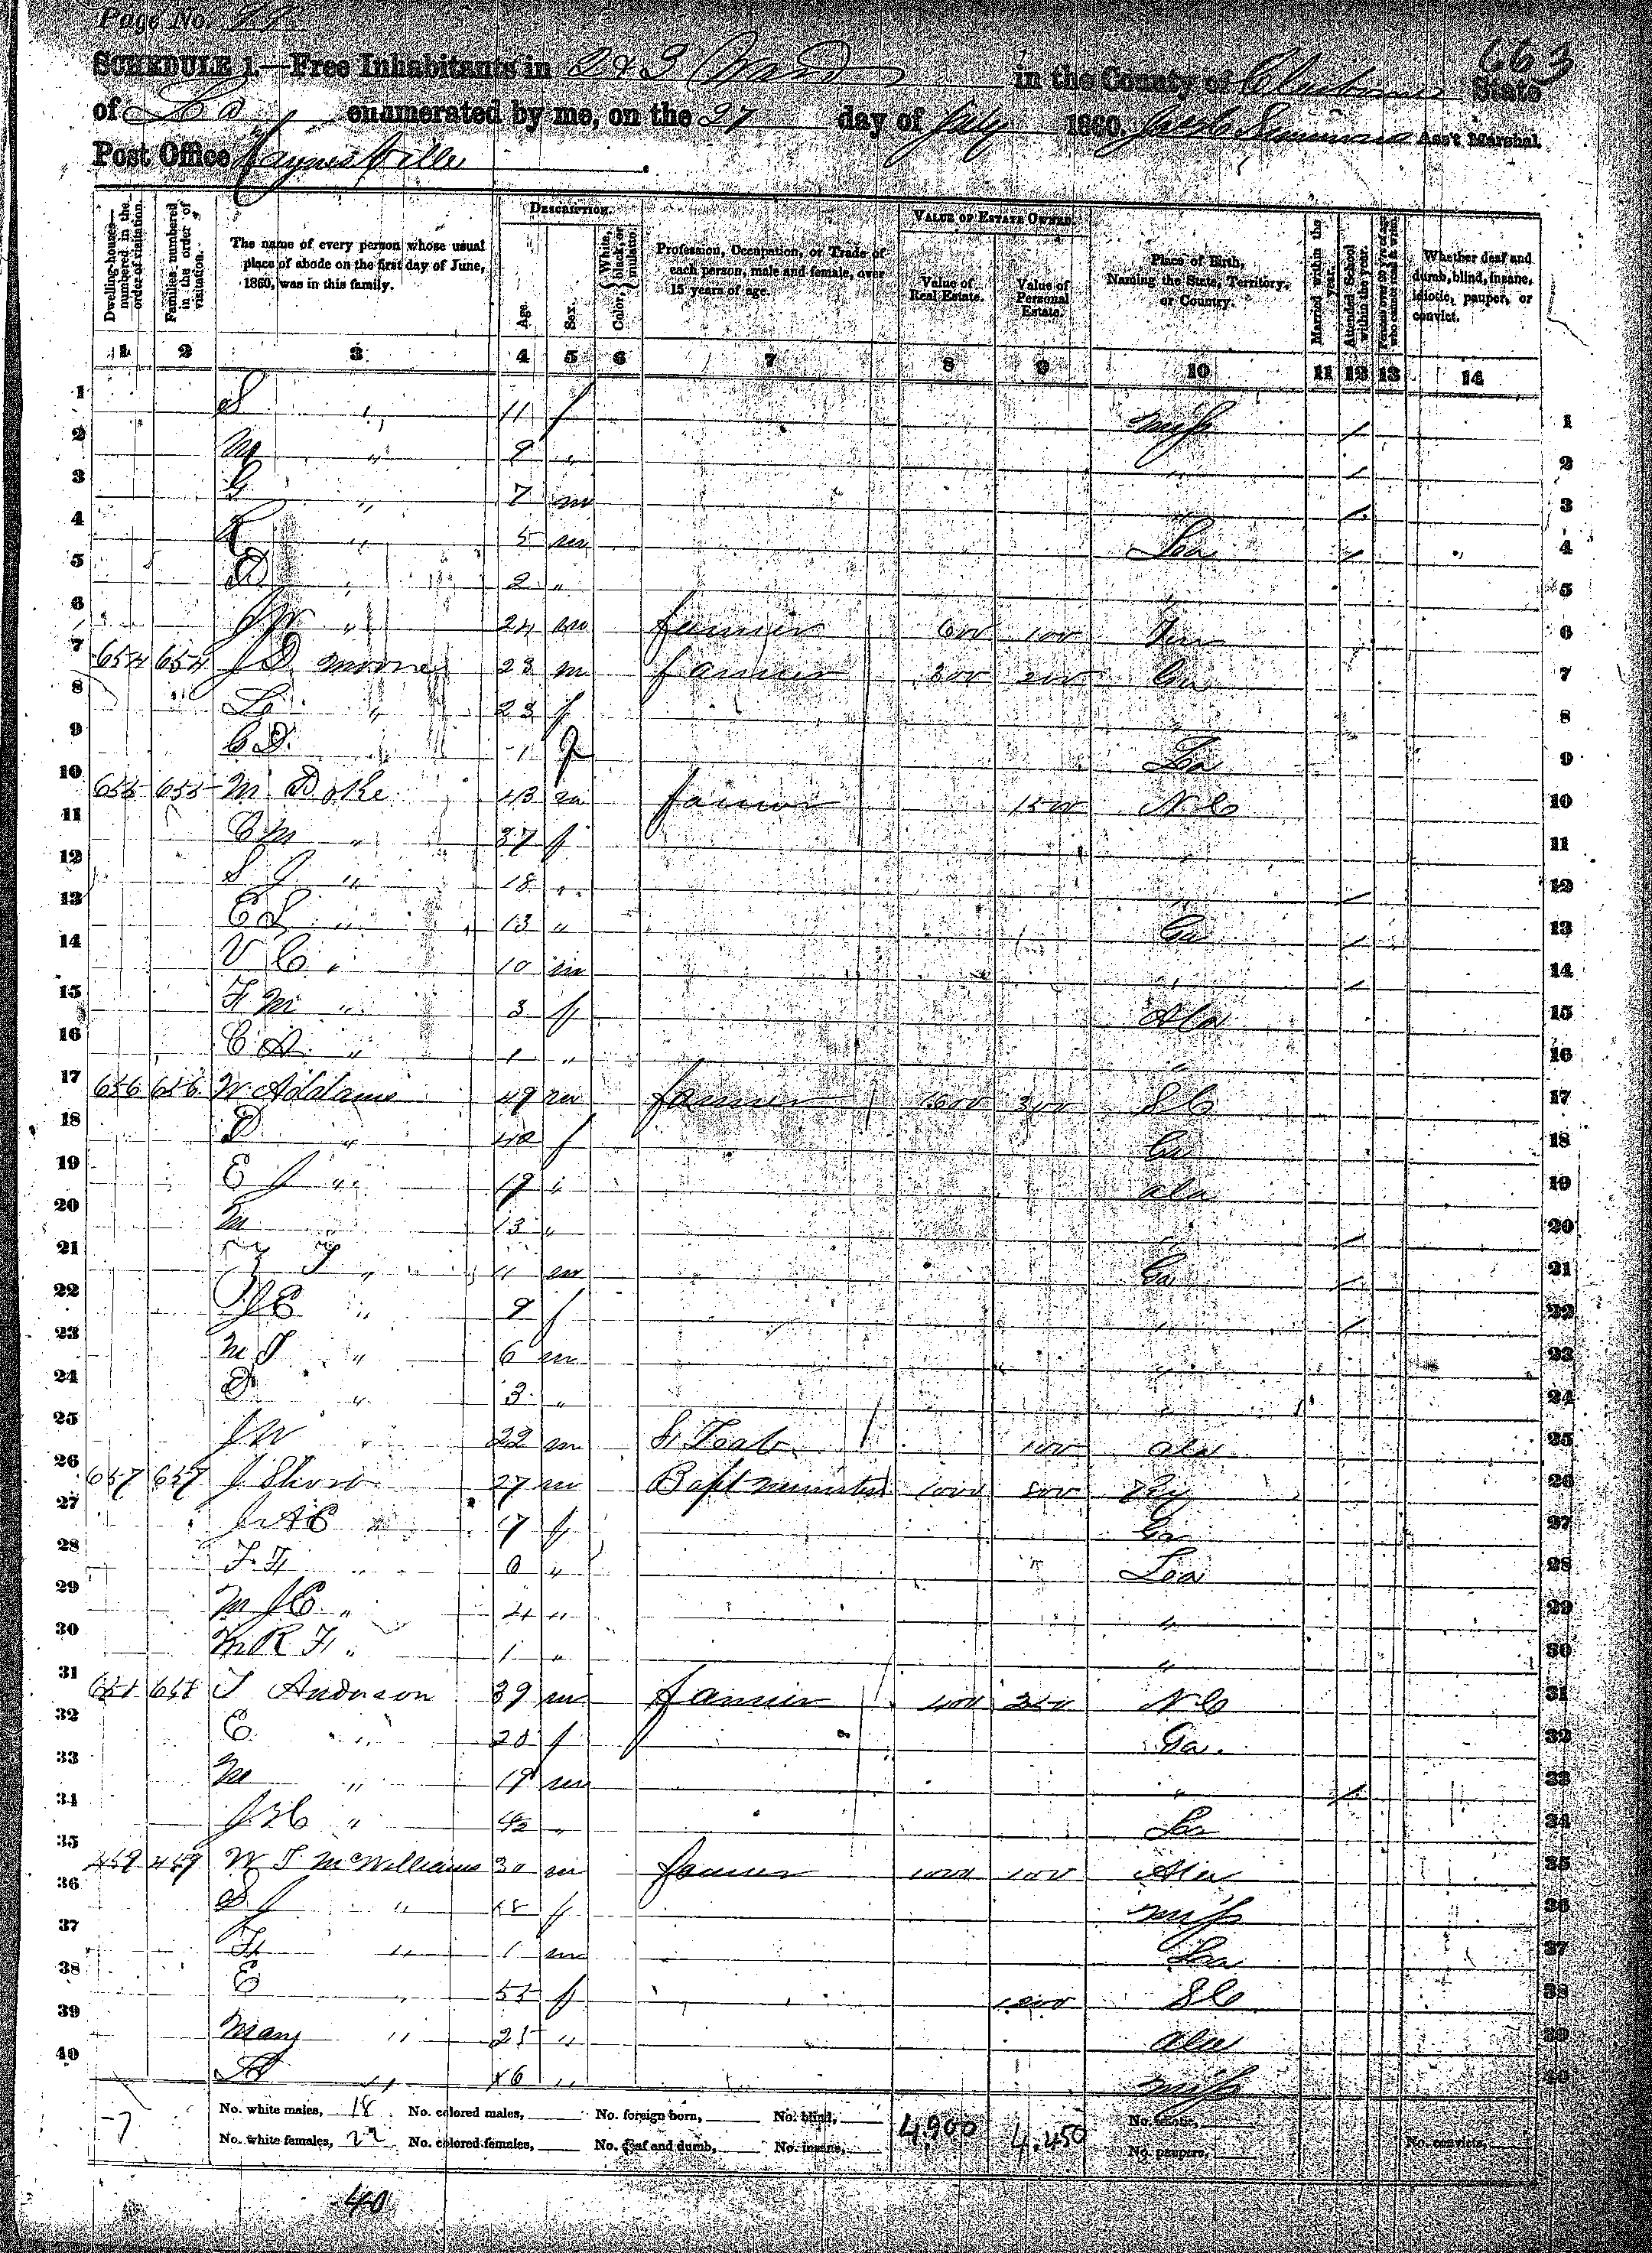 Page No.
663
SCHEDULE 1.—Free Inhabitants in 2 & 3 Ward in the County of Claiborne State
of La enumerated by me, on the 27 day of July 1860. Jacob Simmons Ass't Marshal.
Post Office Haynesville
Dwelling-houses—numbered in the order of visitation.
Families numbered in the order of visitation.
The name of every person whose usual place of abode on the first day of June, 1860, was in this family.
DESCRIPTION.
Age.
Sex.
Color, White, black, or mulatto.
Profession, Occupation, or Trade of each person, male and female, over 15 years of age.
VALUE OF ESTATE OWNED.
Value of Real Estate.
Value of Personal Estate.
Place of Birth, Naming the State, Territory, or Country.
Married within the year.
Attended School within the year.
Persons over 20 y'rs of age who cannot read & write.
Whether deaf and dumb, blind, insane, idiotic, pauper, or convict.
1 2 3 4 5 6 7 8 9 10 11 12 13 14
1 S " 11 f Miss / 1
2 M " 9 " " / 2
3 G " 7 m " / 3
4 " 5 m Lou / 4
5 D " 2 " " 5
6 J W " 24 m farmer 600 100 6
7 654 654 J D Mooney 23 m farmer 300 200 Ga 7
8 L " 23 f " 8
9 C D. " 1 f Lou 9
10 655 655 M Doke 43 m farmer 1500 N C 10
11 C M " 37 f " 11
12 S J " 18 " " / 12
13 E L " 13 " Ga / 13
14 V C " 10 m " / 14
15 F M " 3 f Ala 15
16 C A " 1 " " 16
17 656 656 W Addams 49 m farmer 1600 300 S C 17
18 D " 40 f Ga 18
19 E J " 19 " Ala 19
20 M 13 " " / 20
21 " 11 m Ga / 21
22 J E " 9 f " / 22
23 M J " 6 m " 23
24 " 3 " " 24
25 J W " 22 m 100 Ala 25
26 657 657 J 27 m Bapt minister 1000 800 Ky 26
27 " 17 f Ga 27
28 F F " " Lou 28
29 M J C " 4 " " 29
30 M R F " 1 " " 30
31 658 658 J Anderson 39 m farmer 400 350 N C 31
32 C " 20 f Ga. 32
33 M " 19 m " / 33
34 " " La 34
35 459 459 W J McWilliams 30 m farmer 1000 100 Ala 35
36 S J " 18 f Miss 36
37 F " 1 m Lou 37
38 E " 55 f 1000 S C 38
39 Mary " 25 " Ala 39
40 A " 16 " Miss 40
No. white males, 18 No. colored males, No. foreign born, No. blind, 4,900 4,450 No. idiotic,
No. white females, 22 No. colored females, No. deaf and dumb, No. insane, No. paupers, No. convicts,
40